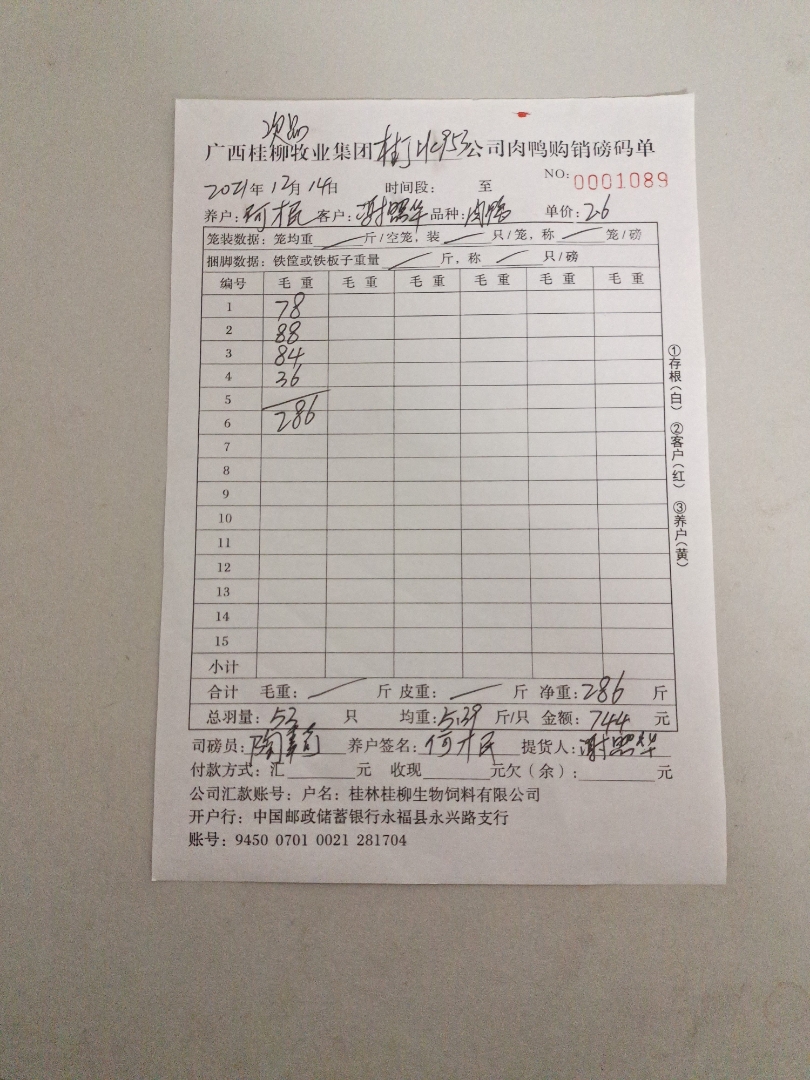 次鸭
广西桂柳牧业集团桂J11953公司肉鸭购销磅码单
NO: 0001089
2021年12月14日 时间段: 至
养户: 何才民 客户: 谢 华 品种: 肉鸭 单价: 2.6
笼装数据: 笼均重 斤/空笼, 装 只/笼, 称 笼/磅
捆脚数据: 铁筐或铁板子重量 斤, 称 只/磅
编号 毛重 毛重 毛重 毛重 毛重 毛重
1 78
2 88
3 84
4 36
5
6 286
7
8
9
10
11
12
13
14
15
小计
合计 毛重: 斤 皮重: 斤 净重: 286 斤
总羽量: 53 只 均重: 5.39 斤/只 金额: 744 元
司磅员: 陶 养户签名: 何才民 提货人: 谢 华
付款方式: 汇 元 收现 元欠(余): 元
公司汇款账号: 户名: 桂林桂柳生物饲料有限公司
开户行: 中国邮政储蓄银行永福县永兴路支行
账号: 9450 0701 0021 281704
①存根(白) ②客户(红) ③养户(黄)